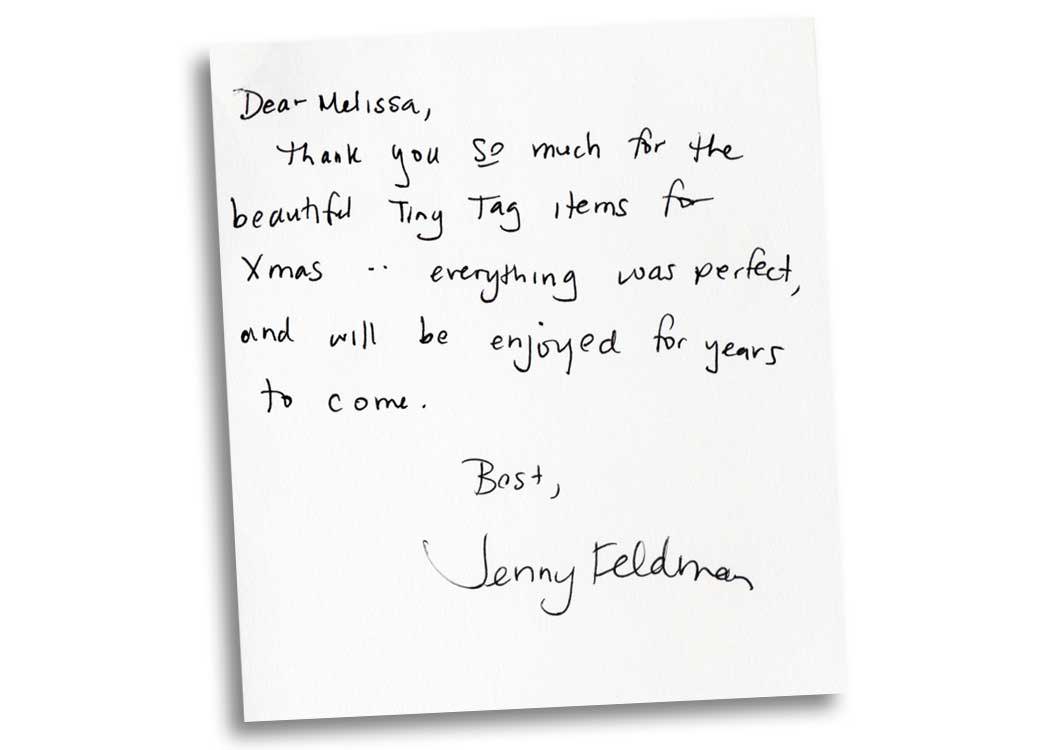 Dear Melissa,
Thank you so much for the
beautiful Tiny Tag items for
Xmas -- everything was perfect,
and will be enjoyed for years
to come.
Best,
Jenny Feldman